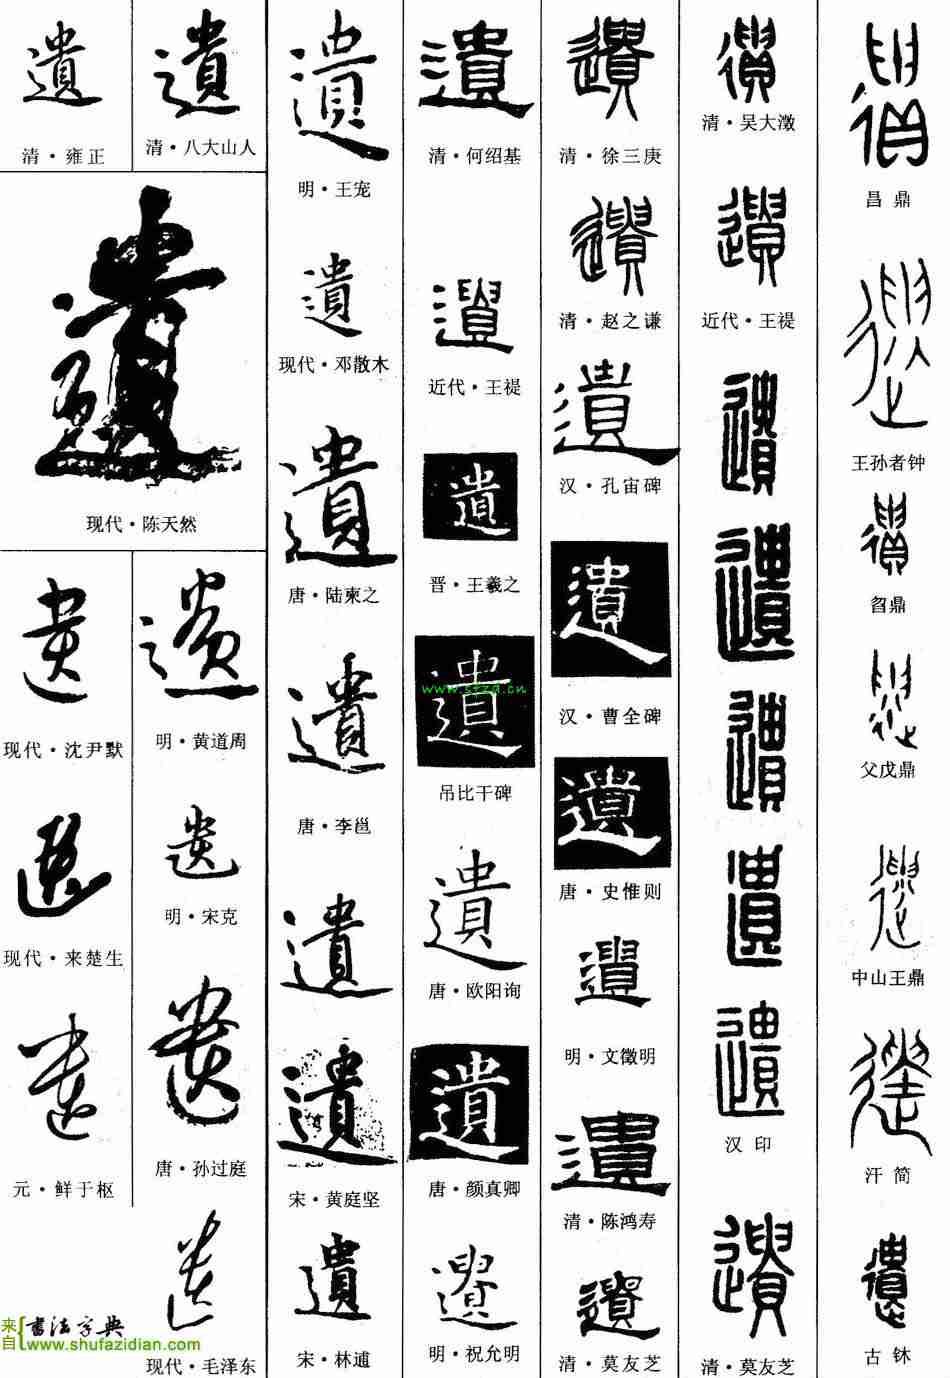 遺 遺
清·雍正 清·八大山人
遺
现代·陈天然
遺 遺
现代·沈尹默 明·黄道周
遺 遺
现代·来楚生 明·宋克
遺 遺
元·鲜于枢 唐·孙过庭
遺
现代·毛泽东
来自 书法字典
www.shufazidian.com
遺
明·王宠
遺
现代·邓散木
遺
唐·陆柬之
遺
唐·李邕
遺
遺
宋·黄庭坚
遺
宋·林逋
遺
清·何绍基
遺
近代·王禔
遺
晋·王羲之
遺
www.sfzd.cn
吊比干碑
遺
唐·欧阳询
遺
唐·颜真卿
遺
明·祝允明
遺
清·徐三庚
遺
清·赵之谦
遺
汉·孔宙碑
遺
汉·曹全碑
遺
唐·史惟则
遺
明·文徵明
遺
清·陈鸿寿
遺
清·莫友芝
遺
清·吴大澂
遺
近代·王禔
遺
遺
遺
遺
遺
汉印
遺
清·莫友芝
遺
昌鼎
遺
王孙者钟
遺
曶鼎
遺
父戊鼎
遺
中山王鼎
遺
汗简
遺
古钵